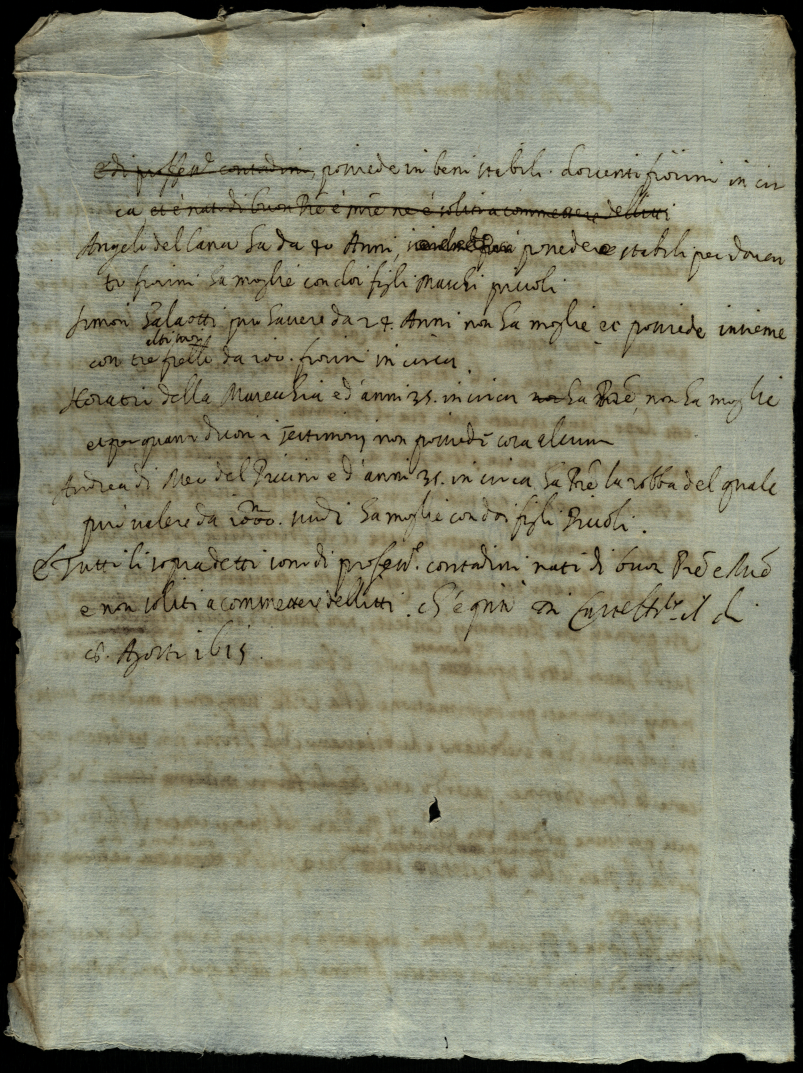 e di profess.e contadini, possiede in beni stabili ducenti fiorini in cir
ca et è nato di buon Prē e mrē ne è solito a commettere delitti
Angelo del Cana ha da 40 Anni, possedere stabili per ducen
to fiorini ha moglie con doi figli Maschi piccoli
Simon Salaotti può havere da 24. Anni non ha moglie et possiede insieme
con tre frelli da 100. fiorini in circa
Horatio della Marechia e d'anni 35. in circa non ha Prē, non ha moglie
et per quanto dicon i Testimonij non possiede cosa alcuna
Andrea di Meo del Piccino e d'anni 35. in circa ha Prē la robba del quale
può valere da 1000. scudi ha moglie con doi figli Piccoli.
e Tutti li sopradetti sono di profess.e contadini nati di buon Prē e Mrē
e non soliti a commetter delitti. ch'è quanto in il di
8. Agosto 1615.